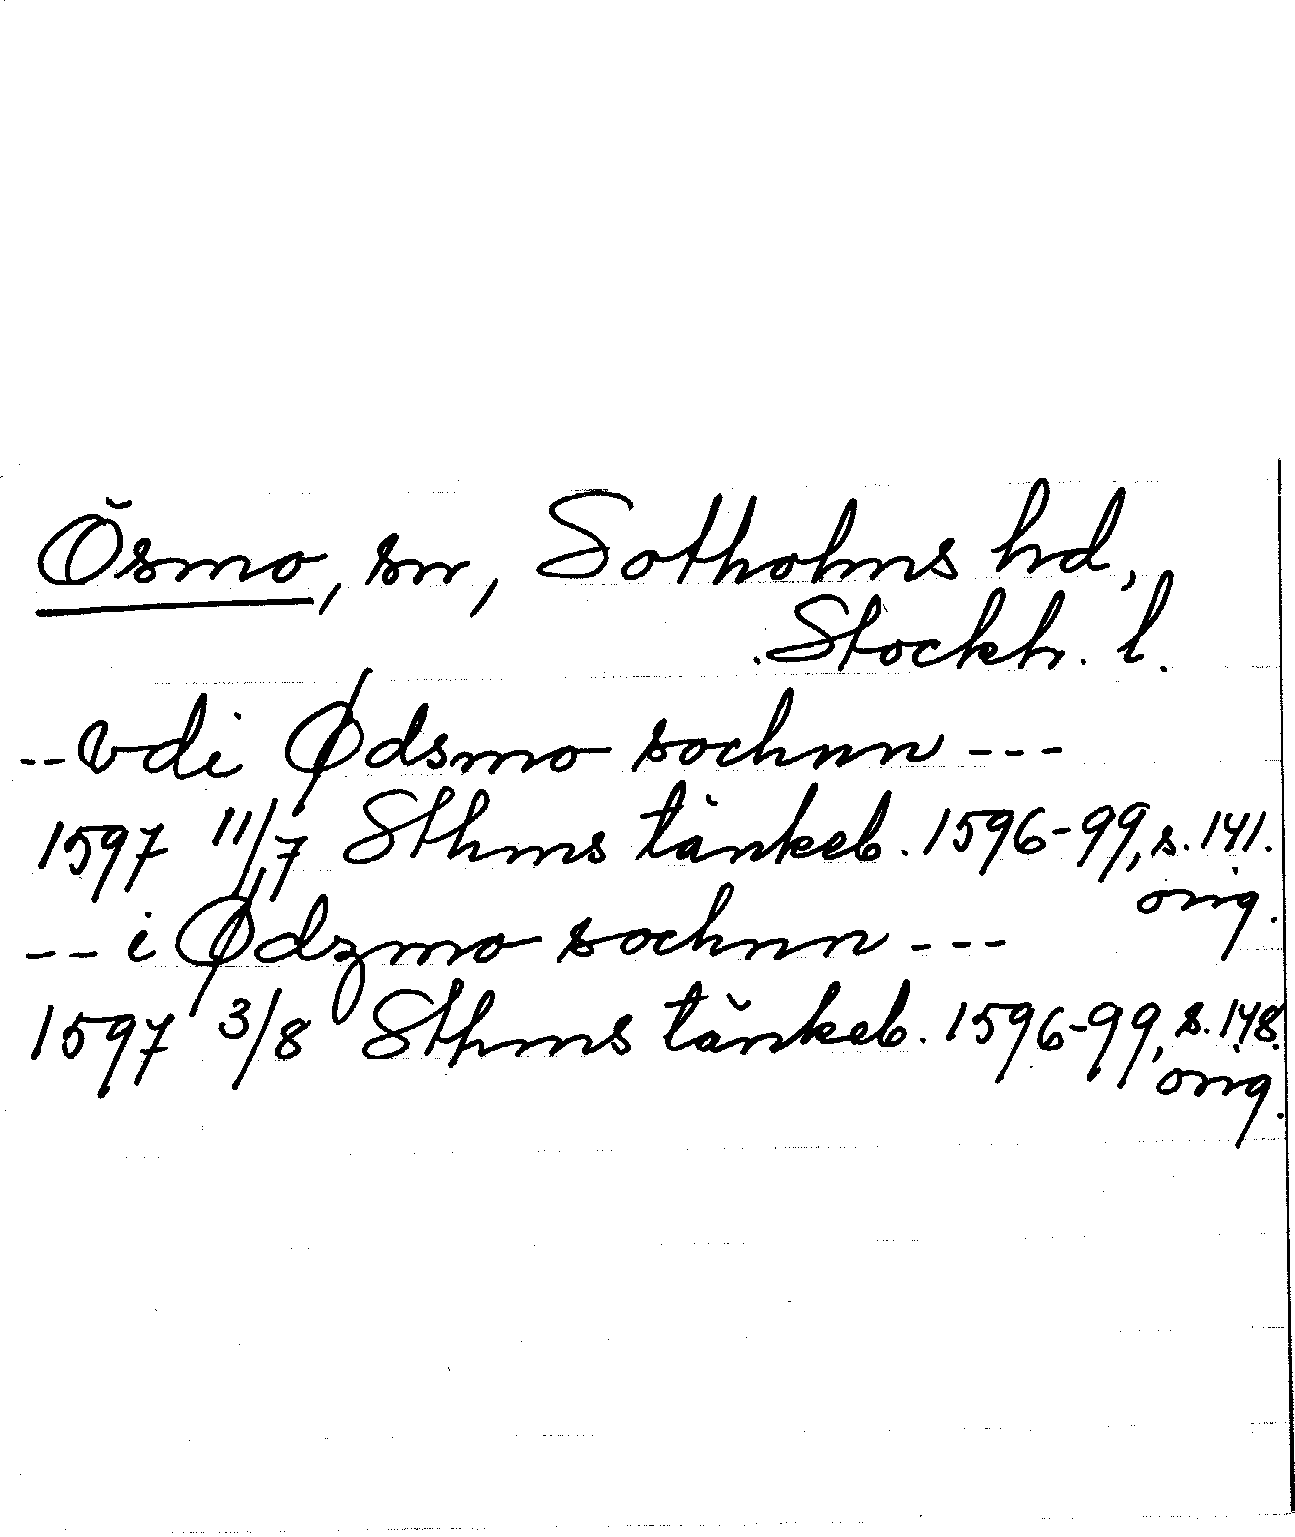 Ösmo, sn, Sotholms hd,
Stockh. l.
-- vdi Ødsmo sochnn ---
1597 11/7 Sthms tänkeb. 1596-99, s. 141.
orig.
-- i Ødzmo sochnn ---
1597 3/8 Sthms tänkeb. 1596-99, s. 148.
orig.